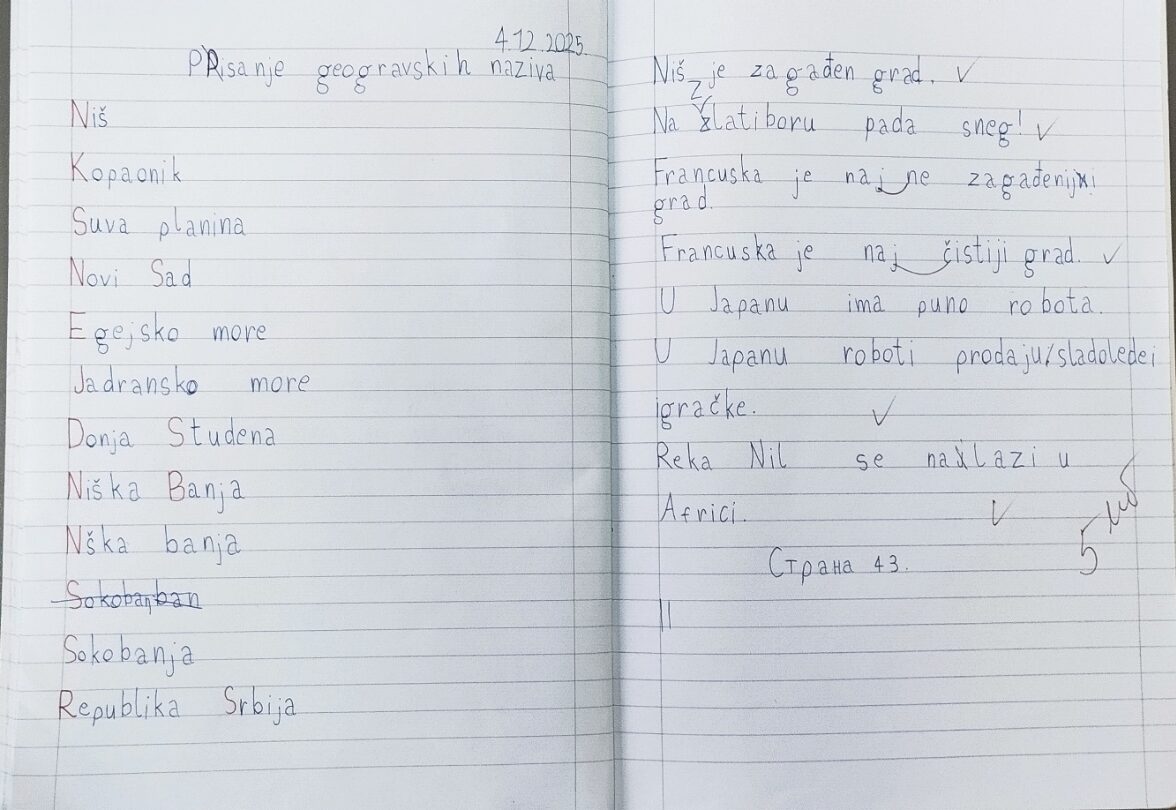 4.12.2025.
Pisanje geogravskih naziva
Niš
Kopaonik
Suva planina
Novi Sad
Egejsko more
Jadransko more
Donja Studena
Niška Banja
Nška banja
Sokobanjban
Sokobanja
Republika Srbija
Niš je zagađen grad.
Na Zlatiboru pada sneg!
Francuska je naj ne zagađeniji
grad.
Francuska je naj čistiji grad.
U Japanu ima puno robota.
U Japanu roboti prodaju/sladoledei
igračke.
Reka Nil se nalazi u
Africi.
5
Страна 43.